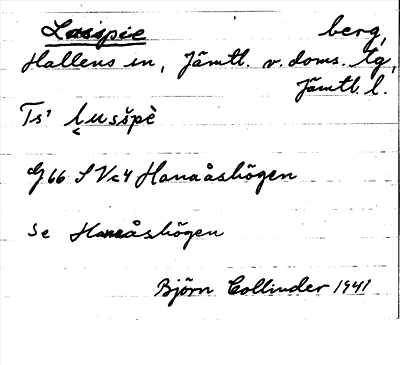 Lasspie berg,
Hallens sn, Jämtl. v. doms. lg,
Jämtl. l.
Ts' lusšpè
G 66 SVc4 Hanaåshögen
Se Hanaåshögen
Björn Collinder 1941